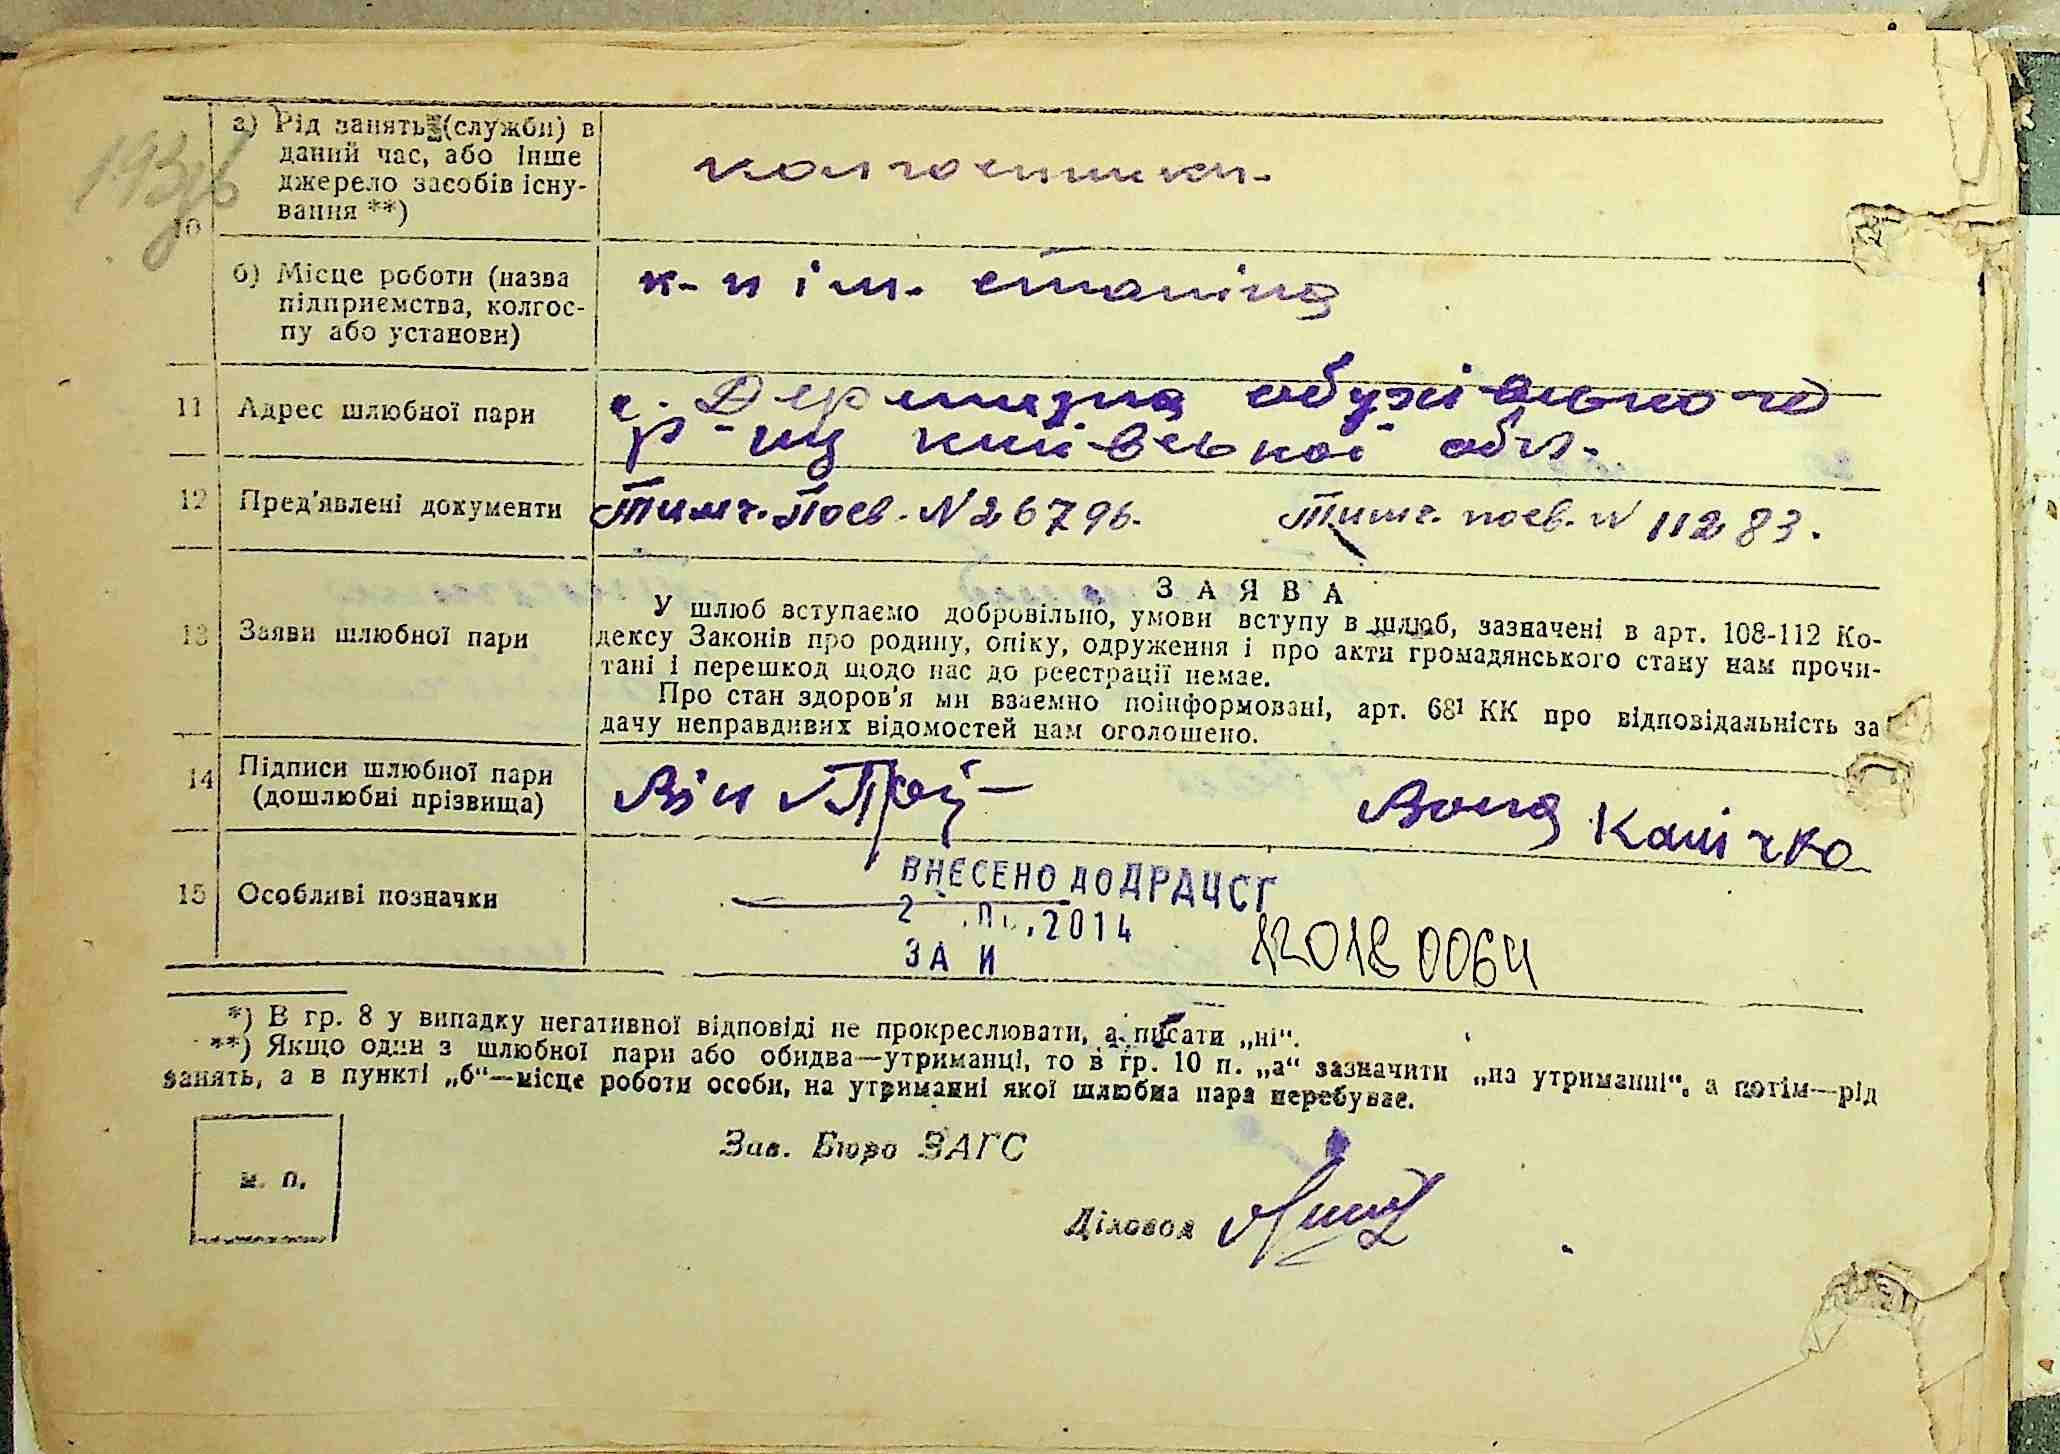 193зв
10 а) Рід занять (служби) в
даний час, або інше
джерело засобів існу-
вання **)
колгоспники.
б) Місце роботи (назва
підприємства, колгос-
пу або установи)
к-п ім. Сталіна
11 Адрес шлюбної пари
с. Деремезна обухівського
р-ну київської обл.
12 Пред'явлені документи
Тимч. Посв. N 26796. Тимч. посв. N 11283.
13 Заяви шлюбної пари
ЗАЯВА
У шлюб вступаємо добровільно, умови вступу в шлюб, зазначені в арт. 108-112 Ко-
дексу Законів про родину, опіку, одруження і про акти громадянського стану нам прочи-
тані і перешкод щодо нас до реєстрації немає.
Про стан здоров'я ми взаємно поінформовані, арт. 68¹ КК про відповідальність за
дачу неправдивих відомостей нам оголошено.
14 Підписи шлюбної пари
(дошлюбні прізвища)
Він ВонаКанічко
15 Особливі позначки
ВНЕСЕНО ДО ДРАЦСГ
2 2014
ЗА И 12018 0064
*) В гр. 8 у випадку негативної відповіді не прокреслювати, а писати „ні“.
**) Якщо один з шлюбної пари або обидва—утриманці, то в гр. 10 п. „а“ зазначити „на утриманні“, а потім—рід
занять, а в пункті „б“—місце роботи особи, на утриманні якої шлюбна пара перебуває.
м. п.
Зав. Бюро ЗАГС
Діловод